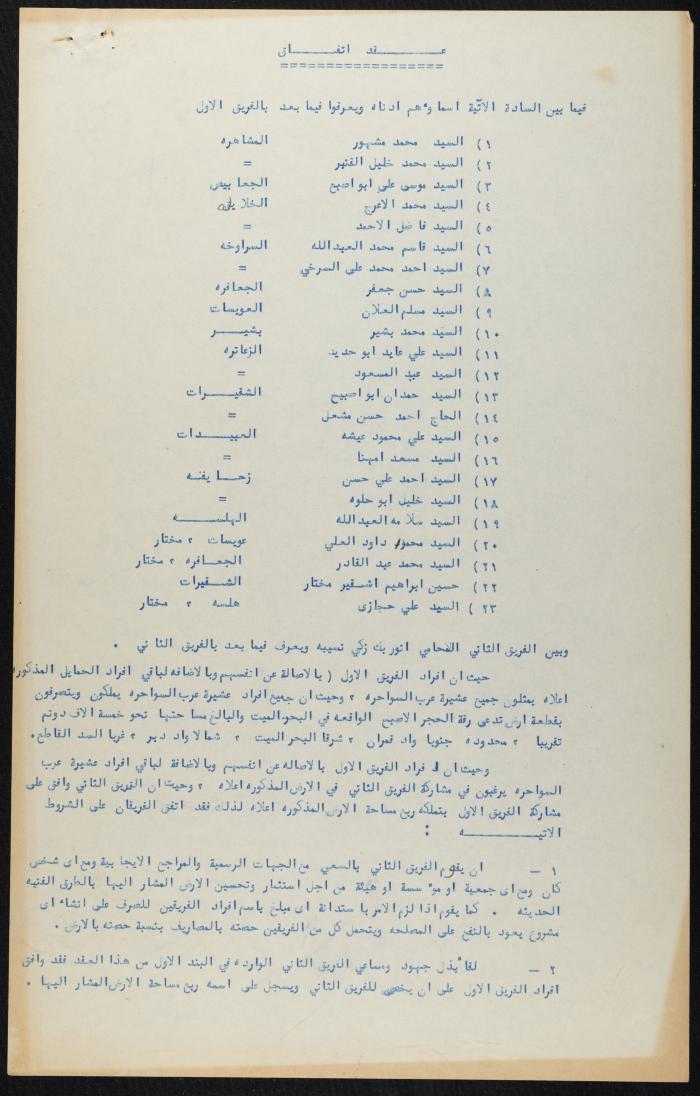 عـــــقد اتفـــــاق
فيما بين السادة الاتية اسماؤهم ادناه ويعرفوا فيما بعد بالفريق الاول
١) السيد محمد مشهور المشاهره
٢) السيد محمد خليل القنهر =
٣) السيد موسى علي ابو اصبع الجعابيص
٤) السيد محمد الاعرج الخلايفه
٥) السيد فاضل الاحمد =
٦) السيد قاسم محمد العبدالله السراوخه
٧) السيد احمد محمد علي السرخي =
٨) السيد حسن جعفر الجعافره
٩) السيد مسلم العلان العويسات
١٠) السيد محمد بشير بشيـــــر
١١) السيد علي عايد ابو حديد الزعاتره
١٢) السيد عبد المسعود =
١٣) السيد حمدان ابو اصبيح الشقيـــرات
١٤) الحاج احمد حسن مشعل =
١٥) السيد علي محمود عيشه العبيـــدات
١٦) السيد مسعد امهنا =
١٧) السيد احمد علي حسن زحــايفـه
١٨) السيد خليل ابو حلوه =
١٩) السيد سلامه العبدالله الهلســـه
٢٠) السيد محمود داود العلي عويسات ، مختار
٢١) السيد محمد عبد القادر الجعــافره ، مختار
٢٢) حسين ابراهيم اشقير مختار الشقـــيرات
٢٣) السيد علي حجازى هلسه ، مختار
وبين الفريق الثاني المحامي انور بك زكي نسيبه ويعرف فيما بعد بالفريق الثاني .
حيث ان افراد الفريق الاول ( بالاصالة عن انفسهم وبالاضافه لباقي افراد الحمايل المذكوره
اعلاه يمثلون جميع عشيرة عرب السواحره ، وحيث ان جميع افراد عشيرة عرب السواحره يملكون ويتصرفون
بقطعة ارض تدعى رقة الحجر الاصبح الواقعه في البحر الميت والبالغ مساحتها نحو خمسة الاف دونم
تقريبا ، محدوده جنوبا واد قمران ، شرقا البحر الميت ، شمالا واد دبر ، غربا السد القاطع .
وحيث ان افراد الفريق الاول بالاصاله عن انفسهم وبالاضافة لباقي افراد عشيرة عرب
السواحره يرغبون في مشاركة الفريق الثاني في الارض المذكوره اعلاه ، وحيث ان الفريق الثاني وافق على
مشاركة الفريق الاول بتملكه ربع مساحة الارض المذكوره اعلاه لذلك فقد اتفق الفريقان على الشروط
الاتيـــــــــه :
١ – ان يقوم الفريق الثاني بالسعي مع الجهات الرسمية والمراجع الايجابية ومع اى شخص
كان ومع اى جمعية او مؤسسة او هيئة من اجل استثمار وتحسين الارض المشار اليها بالطرق الفنيه
الحديثه . كما يقوم اذا لزم الامر باستدانة اى مبلغ باسم افراد الفريقين للصرف على انشاء اى
مشروع يعود بالنفع على المصلحه ويتحمل كل من الفريقين حصته بالمصاريف بنسبة حصته بالارض .
٢ – لقاء بذل جهود ومساعي الفريق الثاني الوارده في البند الاول من هذا العقد فقد وافق
افراد الفريق الاول على ان يخصص للفريق الثاني ويسجل على اسمه ربع مساحة الارض المشار اليها .